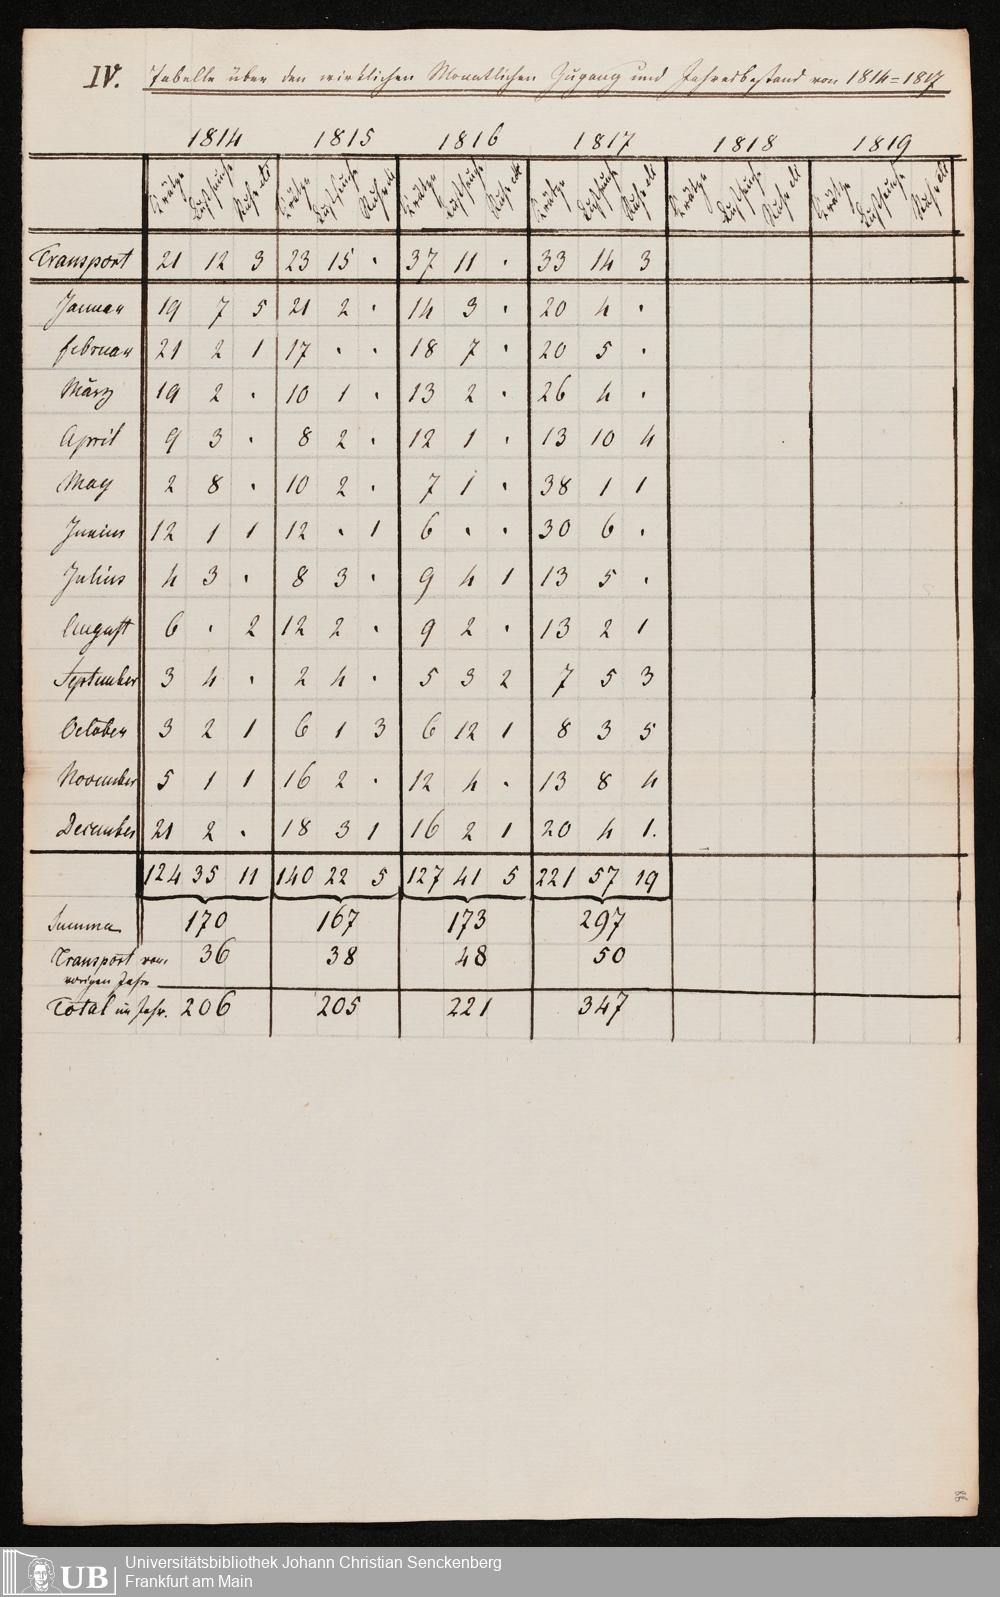 IV. Tabelle über den wirklichen Monatlichen Zugang und Jahresbestand von 1814=1817
1814 1815 1816 1817 1818 1819
Krätze Lustseuche Ruhr etc Krätze Lustseuche Ruhr etc Krätze Lustseuche Ruhr etc Krätze Lustseuche Ruhr etc Krätze Lustseuche Ruhr etc Krätze Lustseuche Ruhr etc
Transport 21 12 3 23 15 . 37 11 . 33 14 3
Januar 19 7 5 21 2 . 14 3 . 20 4 .
februar 21 2 1 17 . . 18 7 . 20 5 .
März 19 2 . 10 1 . 13 2 . 26 4 .
April 9 3 . 8 2 . 12 1 . 13 10 4
May 2 8 . 10 2 . 7 1 . 38 1 1
Junius 12 1 1 12 . 1 6 . . 30 6 .
Julius 4 3 . 8 3 . 9 4 1 13 5 .
August 6 . 2 12 2 . 9 2 . 13 2 1
September 3 4 . 2 4 . 5 3 2 7 5 3
October 3 2 1 6 1 3 6 12 1 8 3 5
November 5 1 1 16 2 . 12 4 . 13 8 4
December 21 2 . 18 3 1 16 2 1 20 4 1.
124 35 11 140 22 5 127 41 5 221 57 19
Summa 170 167 173 297
Transport vom 36 38 48 50
vorigen Jahr
Total im Jahr. 206 205 221 347
88
UB Universitätsbibliothek Johann Christian Senckenberg
Frankfurt am Main